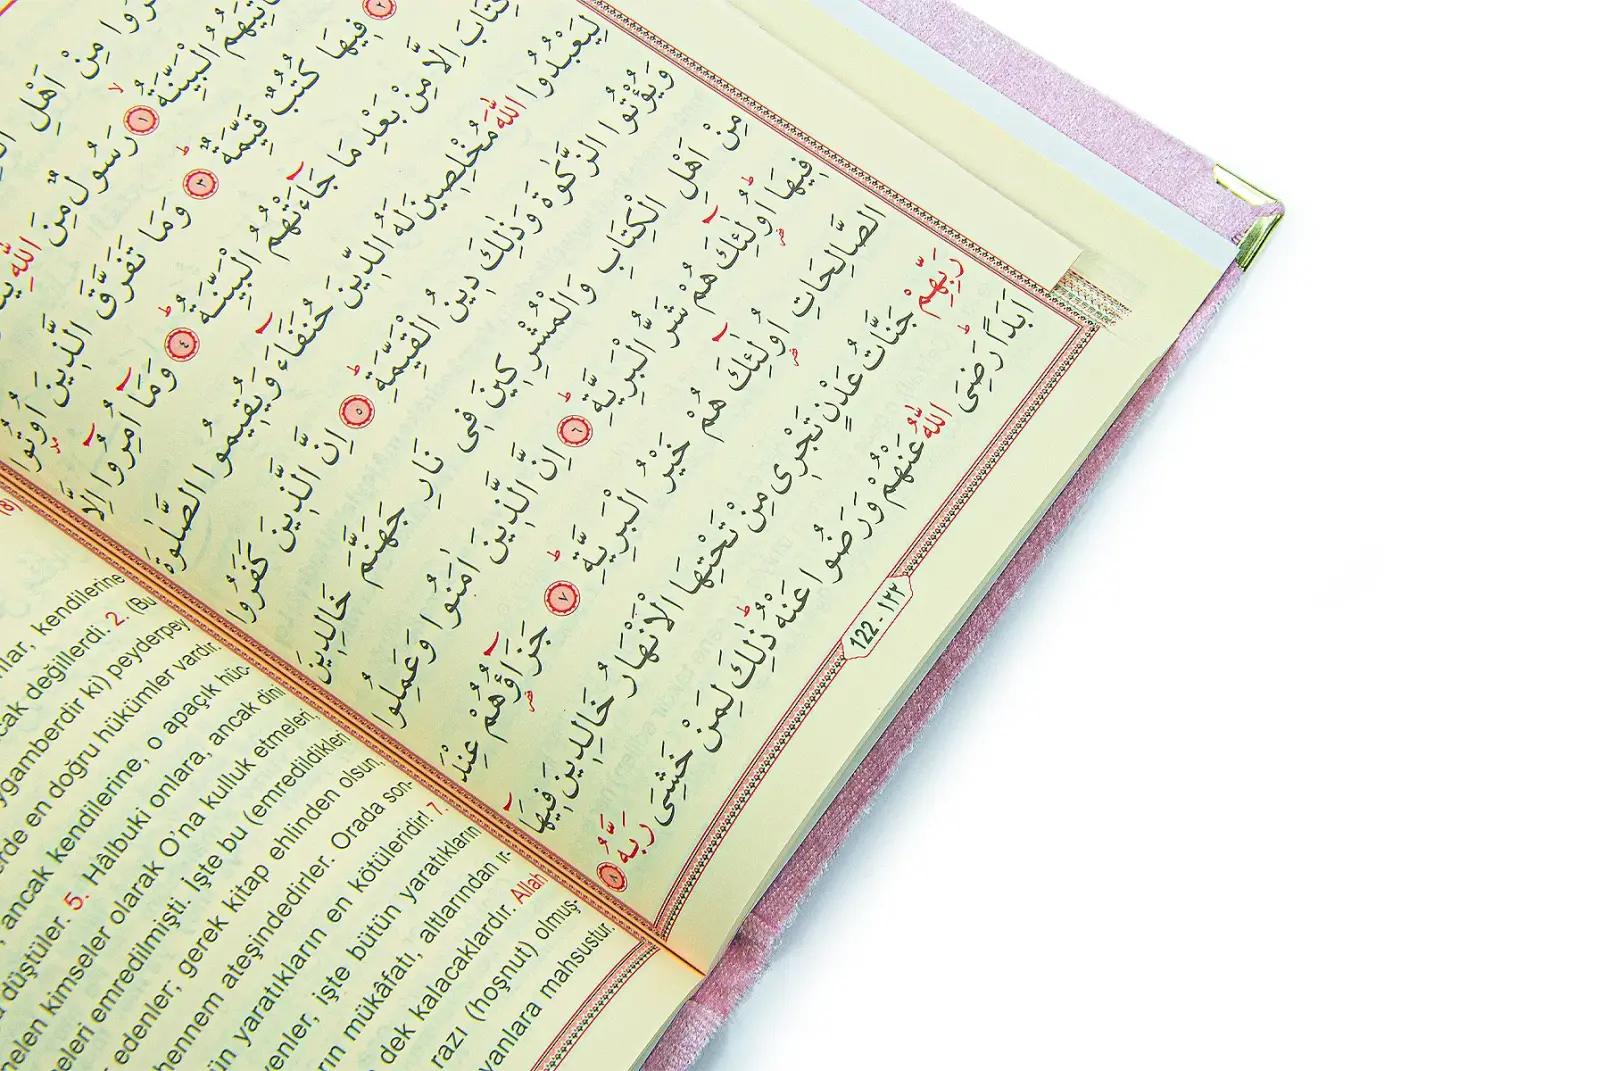 مِنْ اَهْلِ
الْبَيِّنَةُۙ ﴿١﴾ رَسُولٌ مِنَ اللّٰهِ
﴿٢﴾ فِيهَا كُتُبٌ قَيِّمَةٌۜ ﴿٣﴾ وَمَا تَفَرَّقَ الَّذِينَ اُو۫تُوا
اِلَّا مِنْ بَعْدِ مَا جَٓاءَتْهُمُ الْبَيِّنَةُۜ ﴿٤﴾ وَمَٓا اُمِرُٓوا اِلَّا
لِيَعْبُدُوا اللّٰهَ مُخْلِصِينَ لَهُ الدِّينَ حُنَفَٓاءَ وَيُقِيمُوا الصَّلٰوةَ
وَيُؤْتُوا الزَّكٰوةَ وَذٰلِكَ دِينُ الْقَيِّمَةِۜ ﴿٥﴾ اِنَّ الَّذِينَ كَفَرُوا
مِنْ اَهْلِ الْكِتَابِ وَالْمُشْرِكِينَ فِى نَارِ جَهَنَّمَ خَالِدِينَ
فِيهَاۜ اُو۬لٰٓئِكَ هُمْ شَرُّ الْبَرِيَّةِۜ ﴿٦﴾ اِنَّ الَّذِينَ اٰمَنُوا وَعَمِلُوا
الصَّالِحَاتِ اُو۬لٰٓئِكَ هُمْ خَيْرُ الْبَرِيَّةِۜ ﴿٧﴾ جَزَٓاؤُ۬هُمْ عِنْدَ
رَبِّهِمْ جَنَّاتُ عَدْنٍ تَجْرِى مِنْ تَحْتِهَا الْاَنْهَارُ خَالِدِينَ فِيهَٓا
اَبَدًاۜ رَضِىَ اللّٰهُ عَنْهُمْ وَرَضُوا عَنْهُۜ ذٰلِكَ لِمَنْ خَشِىَ رَبَّهُ ﴿٨﴾
122 - ١٢٢
kendilerine
değillerdi. 2. (Bu
ki) peyderpey
en doğru hükümler vardır.
ancak kendilerine, o apaçık hüc-
düştüler. 5. Hâlbuki onlara, ancak dini
kimseler olarak O'na kulluk etmeleri,
emredilmişti. İşte bu (emredildikleri
edenler; gerek kitap ehlinden olsun,
ateşindedirler. Orada son-
yaratıkların en kötüleridir! 7.
işte bütün yaratıkların
mükâfatı, altlarından ır-
dek kalacaklardır. Allah
razı (hoşnut) olmuş-
mahsustur.